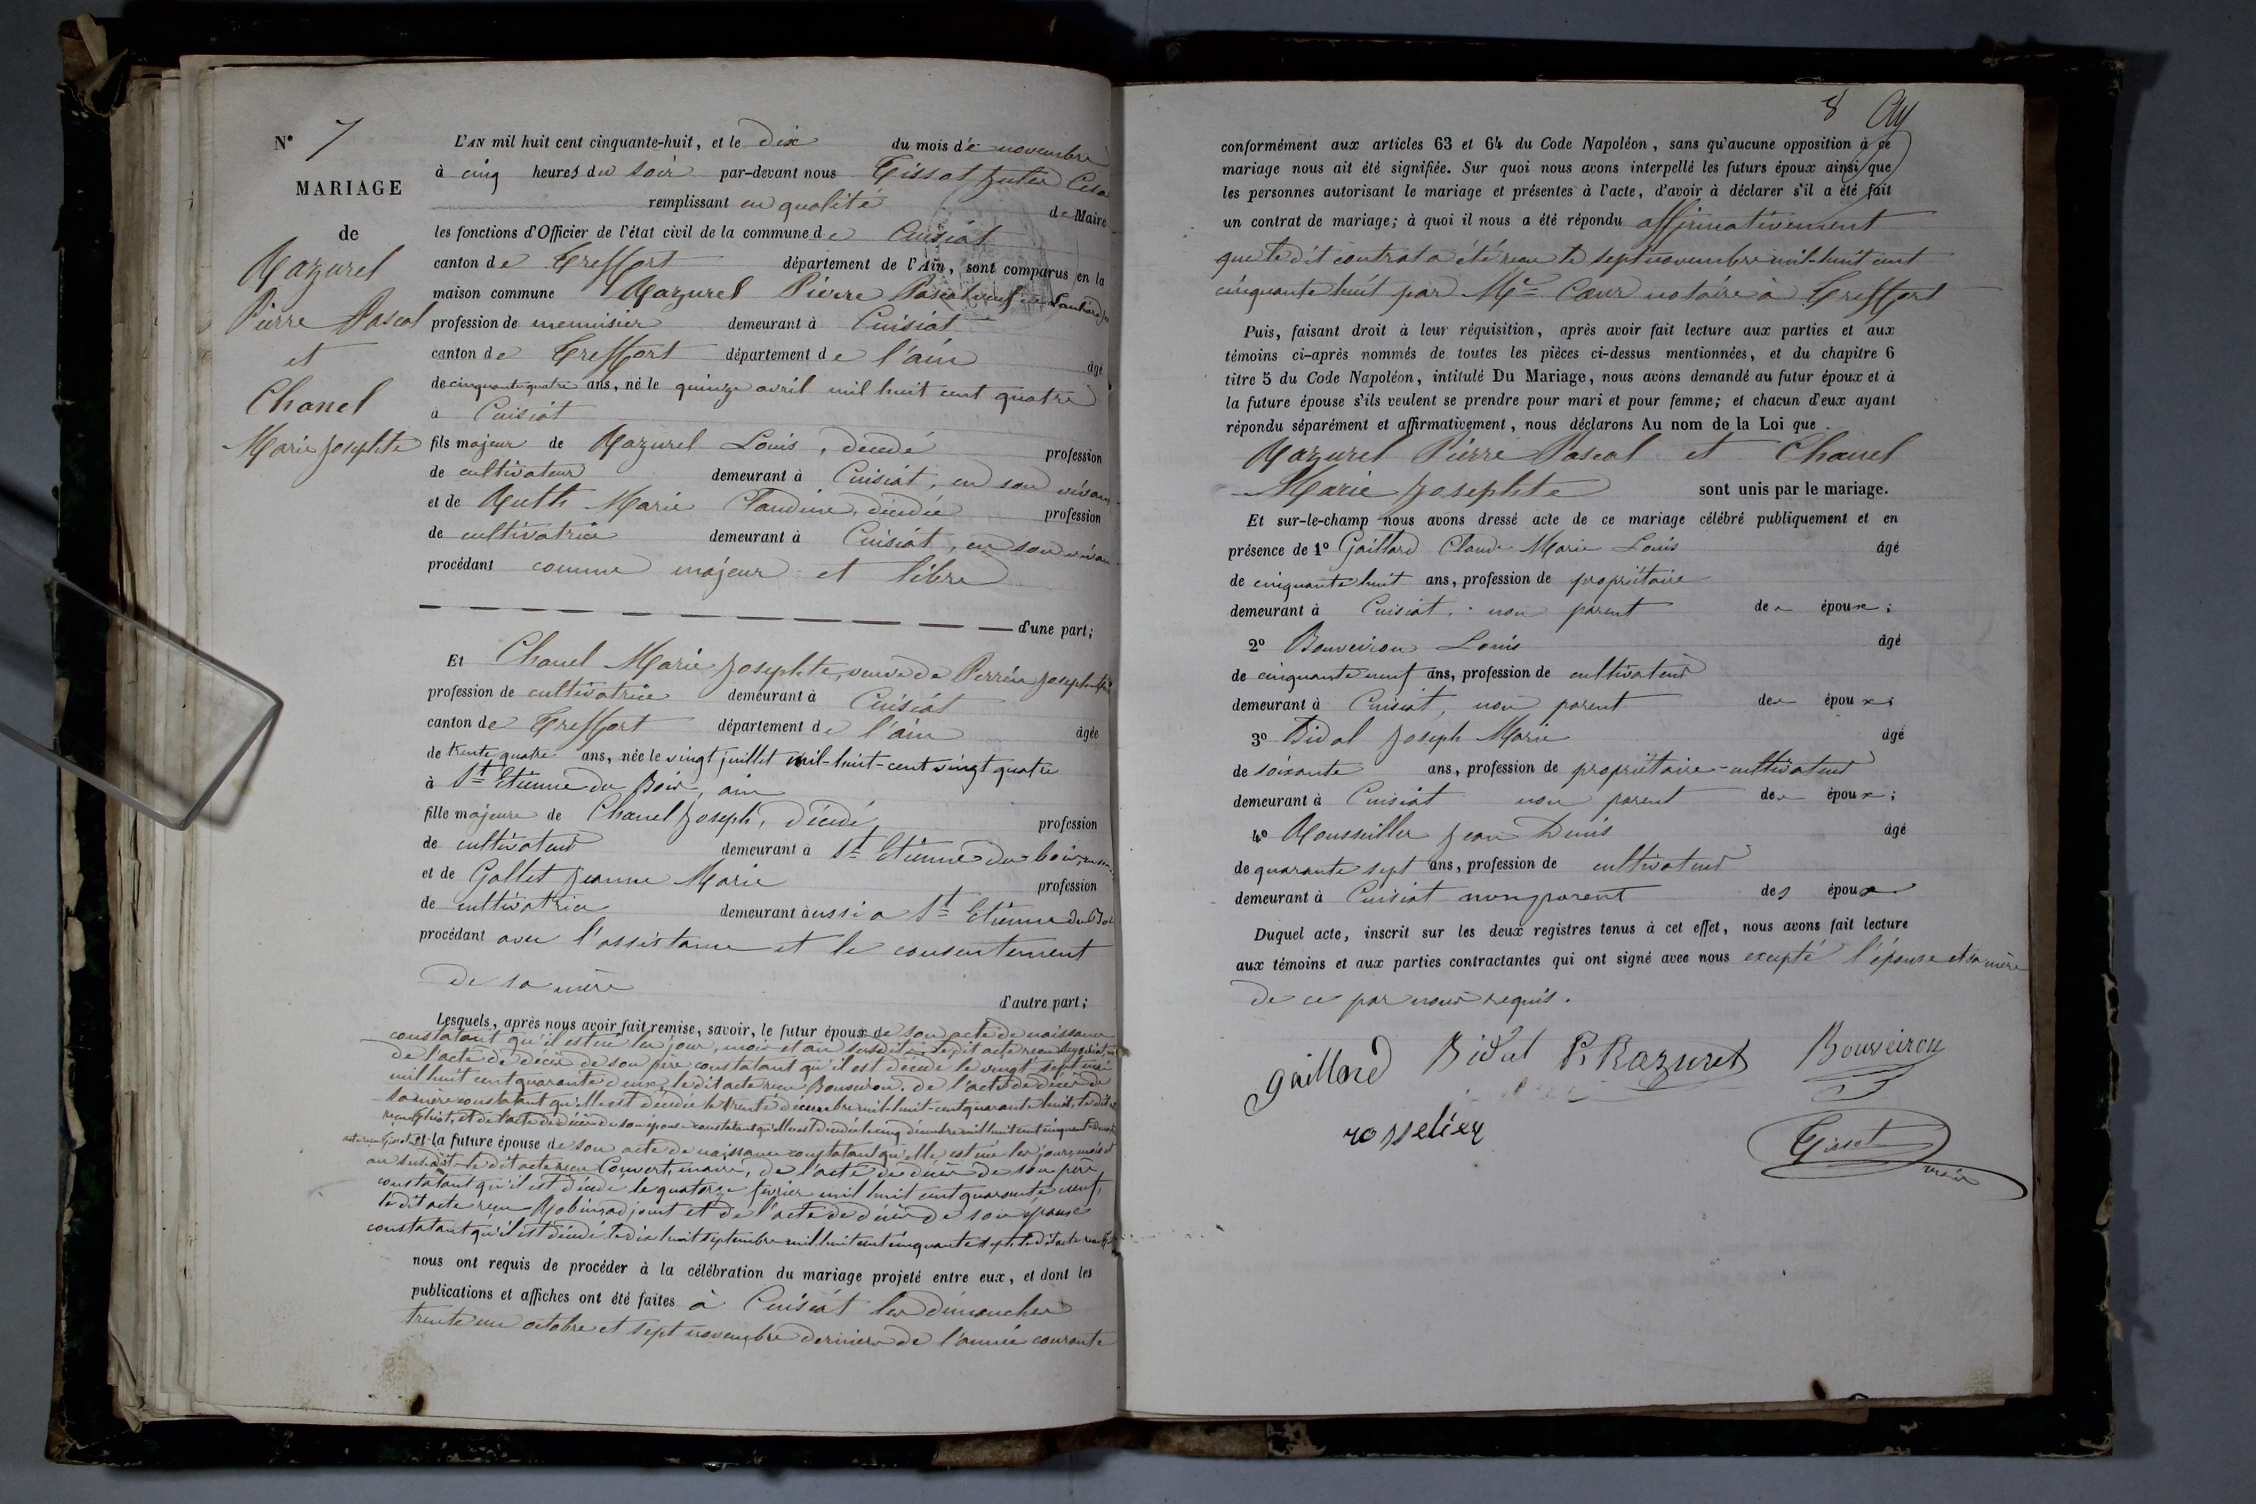 N° 7
MARIAGE
de
Razurel
Pierre Pascal
et
Chanel
Marie Josephte
L'AN mil huit cent cinquante-huit, et le dix du mois de novembre
à cinq heures du soir par-devant nous Tissot
remplissant en qualité de Maire
les fonctions d'Officier de l'état civil de la commune de Cuisiat
canton de Treffort département de l'Ain, sont comparus en la
maison commune Razurel Pierre Pascal veuf de
profession de menuisier demeurant à Cuisiat
canton de Treffort département de l'ain âgé
de cinquante quatre ans, né le quinze avril mil huit cent quatre
à Cuisiat
fils majeur de Razurel Louis, décédé profession
de cultivateur demeurant à Cuisiat, en son vivant
et de Ruth Marie Claudine, décédée profession
de cultivatrice demeurant à Cuisiat, en son vivan
procédant comme majeur et libre
d'une part;
Et Chanel Marie Josephte, veuve de Perrin Joseph
profession de cultivatrice demeurant à Cuisiat
canton de Treffort département de l'ain âgée
de trente quatre ans, née le vingt juillet mil-huit-cent vingt quatre
à St Etienne du Bois, ain
fille majeure de Chanel Joseph, décédé profession
de cultivateur demeurant à St Etienne du bois,
et de Gallet Jeanne Marie profession
de cultivatrice demeurant aussi a St Etienne du Boi
procédant avec l'assistance et le consentement
de sa mère
d'autre part;
Lesquels, après nous avoir fait remise, savoir, le futur époux de son acte de naissance
constatant qu'il est né les jour, mois et an susdit le dit acte reçu
de l'acte de décès de son père constatant qu'il est décédé le vingt sept mai
mil huit cent quarante deux, le dit acte reçu Bouveiron. de l'acte de décès de
sa mère constatant qu'elle est décédée le trente décembre mil-huit-cent quarante huit, le dit
et de l'acte de décès de son épouse constatant qu'elle est décédée le cinq décembre mil huit cent cinquante
et la future épouse de son acte de naissance constatant qu'elle est née les jour, mois et
an susdit le dit acte reçu Convert, maire, de l'acte de décès de son père
constatant qu'il est décédé le quatorze février mil huit cent quarante neuf,
le dit acte reçu Robin adjoint et de l'acte de décès de son époux
constatant qu'il est décédé le dix huit septembre mil huit cent cinquante sept, le dit acte
nous ont requis de procéder à la célébration du mariage projeté entre eux, et dont les
publications et affiches ont été faites à Cuisiat les dimanches
trente un octobre et sept novembre derniers de l'année courante
8
conformément aux articles 63 et 64 du Code Napoléon, sans qu'aucune opposition à ce
mariage nous ait été signifiée. Sur quoi nous avons interpellé les futurs époux ainsi que
les personnes autorisant le mariage et présentes à l'acte, d'avoir à déclarer s'il a été fait
un contrat de mariage; à quoi il nous a été répondu affirmativement
que le dit contrat a été reçu le sept novembre mil-huit cent
cinquante huit par Me Cœur notaire à Treffort
Puis, faisant droit à leur réquisition, après avoir fait lecture aux parties et aux
témoins ci-après nommés de toutes les pièces ci-dessus mentionnées, et du chapitre 6
titre 5 du Code Napoléon, intitulé Du Mariage, nous avons demandé au futur époux et à
la future épouse s'ils veulent se prendre pour mari et pour femme; et chacun d'eux ayant
répondu séparément et affirmativement, nous déclarons Au nom de la Loi que
Razurel Pierre Pascal et Chanel
Marie Josephte sont unis par le mariage.
Et sur-le-champ nous avons dressé acte de ce mariage célébré publiquement et en
présence de 1° Gaillard Claude Marie Louis âgé
de cinquante huit ans, profession de propriétaire
demeurant à Cuisiat, non parent des époux;
2° Bouveiron Louis âgé
de cinquante neuf ans, profession de cultivateur
demeurant à Cuisiat, non parent des époux;
3° Bidal Joseph Marie âgé
de soixante ans, profession de propriétaire-cultivateur
demeurant à Cuisiat non parent des époux;
4° Rousseiller Jean Denis âgé
de quarante sept ans, profession de cultivateur
demeurant à Cuisiat non parent des époux
Duquel acte, inscrit sur les deux registres tenus à cet effet, nous avons fait lecture
aux témoins et aux parties contractantes qui ont signé avec nous excepté l'épouse et sa mère
de ce par nous requis.
gaillard Bidal P. Razurel Bouveiron
rosselier
Tissot
maire